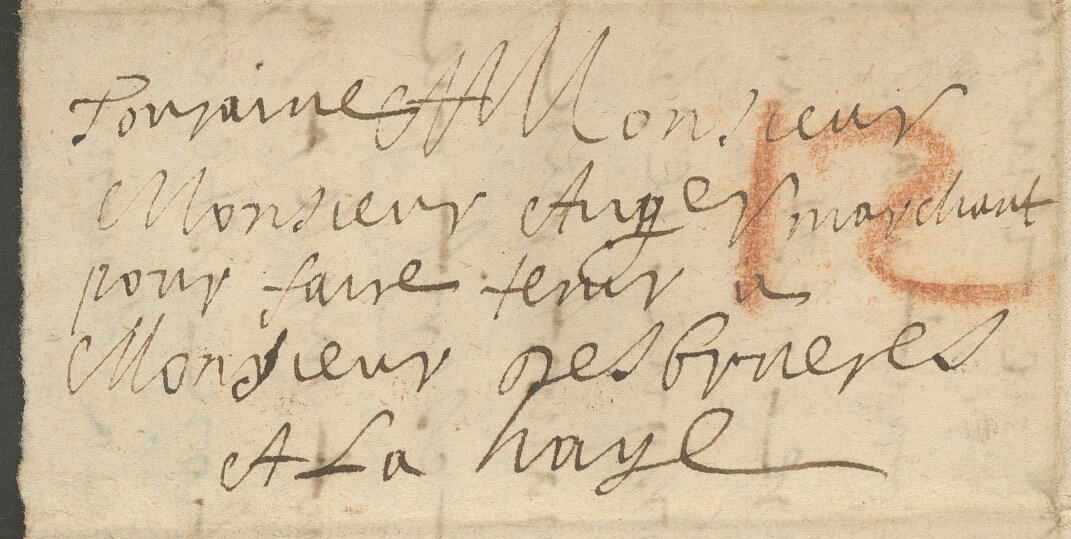 Touraine A Monsieur
Monsieur Auger marchant
pour faire tenir a
Monsieur Desbrueres
A La haye
12